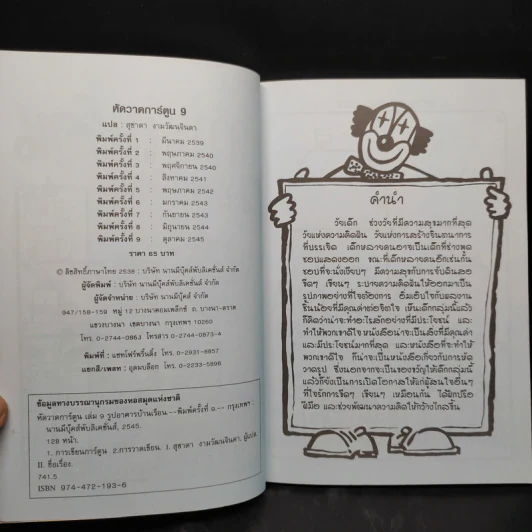 หัดวาดการ์ตูน 9
แปล : สุชาดา งามวัฒนจินดา
พิมพ์ครั้งที่ 1 : มีนาคม 2539
พิมพ์ครั้งที่ 2 : พฤษภาคม 2540
พิมพ์ครั้งที่ 3 : พฤศจิกายน 2540
พิมพ์ครั้งที่ 4 : สิงหาคม 2541
พิมพ์ครั้งที่ 5 : พฤษภาคม 2542
พิมพ์ครั้งที่ 6 : มกราคม 2543
พิมพ์ครั้งที่ 7 : กันยายน 2543
พิมพ์ครั้งที่ 8 : มิถุนายน 2544
พิมพ์ครั้งที่ 9 : ตุลาคม 2545
ราคา 65 บาท
© ลิขสิทธิ์ภาษาไทย 2538 : บริษัท นานมีบุ๊คส์พับลิเคชั่นส์ จำกัด
ผู้จัดพิมพ์ : บริษัท นานมีบุ๊คส์พับลิเคชั่นส์ จำกัด
ผู้จัดจำหน่าย : บริษัท นานมีบุ๊คส์ จำกัด
947/158-159 หมู่ 12 บางนาคอมเพล็กซ์ ถ. บางนา-ตราด
แขวงบางนา เขตบางนา กรุงเทพฯ 10260
โทร. 0-2744-0863 โทรสาร 0-2744-0873
พิมพ์ที่ : แฮทโฟร์พริ้นติ้ง โทร. 0-2931-8857
แยกสี/เพลท : อุดมบล็อก โทร. 0-2233-5896
ข้อมูลทางบรรณานุกรมของหอสมุดแห่งชาติ
หัดวาดการ์ตูน เล่ม 9 รูปอาคารบ้านเรือน.--พิมพ์ครั้งที่ 9.-- กรุงเทพฯ :
นานมีบุ๊คส์พับลิเคชั่นส์, 2545.
128 หน้า.
1. การเขียนการ์ตูน 2.การวาดเขียน. I. สุชาดา งามวัฒนจินดา, ผู้แปล.
II. ชื่อเรื่อง.
741.5
ISBN 974-472-193-6
คำนำ
วัยเด็ก ช่วงวัยที่มีความสุขมากที่สุด
วัยแห่งความคิดฝัน วัยแห่งการสร้างจินตนาการ
ที่บรรเจิด เด็กหลายคนอาจเป็นเด็กที่ช่างพูด
ชอบแสดงออก ขณะที่เด็กหลายคนอีกเช่นกัน
ชอบที่จะนั่งเงียบๆ มีความสุขกับการจับดินสอ
ขีดๆ เขียนๆ ระบายความคิดฝันให้ออกมาเป็น
รูปภาพอย่างที่ใจต้องการ อิ่มเอิบใจกับผลงาน
ชิ้นน้อยที่มีคุณค่าต่อจิตใจ เห็นเด็กกลุ่มนี้แล้ว
ก็คิดว่าน่าจะทำอะไรสักอย่างที่มีประโยชน์ และ
ทำให้พวกเขาดีใจ หนังสือน่าจะเป็นสิ่งที่มีคุณค่า
และมีประโยชน์มากที่สุด และหนังสือที่จะทำให้
พวกเขาดีใจ ก็น่าจะเป็นหนังสือเกี่ยวกับการหัด
วาดรูป ซึ่งนอกจากจะเป็นของขวัญให้เด็กกลุ่มนี้
แล้วก็ยังเป็นการเปิดโอกาสให้แก่ผู้สนใจอื่นๆ
ที่ใจรักการขีดๆ เขียนๆ เหมือนกัน ได้ฝึกปรือ
ฝีมือ และช่วยพัฒนาความคิดให้กว้างไกลขึ้น